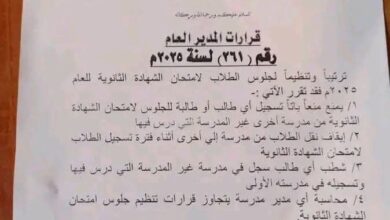 السلام عليكم ورحمة الله وبركاته
قرارات المدير العام
رقم (٢٦١) لسنة ٢٠٢٥م
ترتيباً وتنظيماً لجلوس الطلاب لامتحان الشهادة الثانوية للعام
٢٠٢٥م فقد تقرر الآتي :-
١/ يمنع منعاً باتاً تسجيل أي طالب أو طالبة للجلوس لامتحان الشهادة
الثانوية من مدرسة أخرى غير المدرسة التي درس فيها
٢/ إيقاف نقل الطلاب من مدرسة إلى أخرى أثناء فترة تسجيل الطلاب
لامتحان الشهادة الثانوية
٣/ شطب أي طالب سجل في مدرسة غير المدرسة التي درس فيها
وتسجيله في مدرسته الأولى
٤/ محاسبة أي مدير مدرسة يتجاوز قرارات تنظيم جلوس امتحان
الشهادة الثانوية.